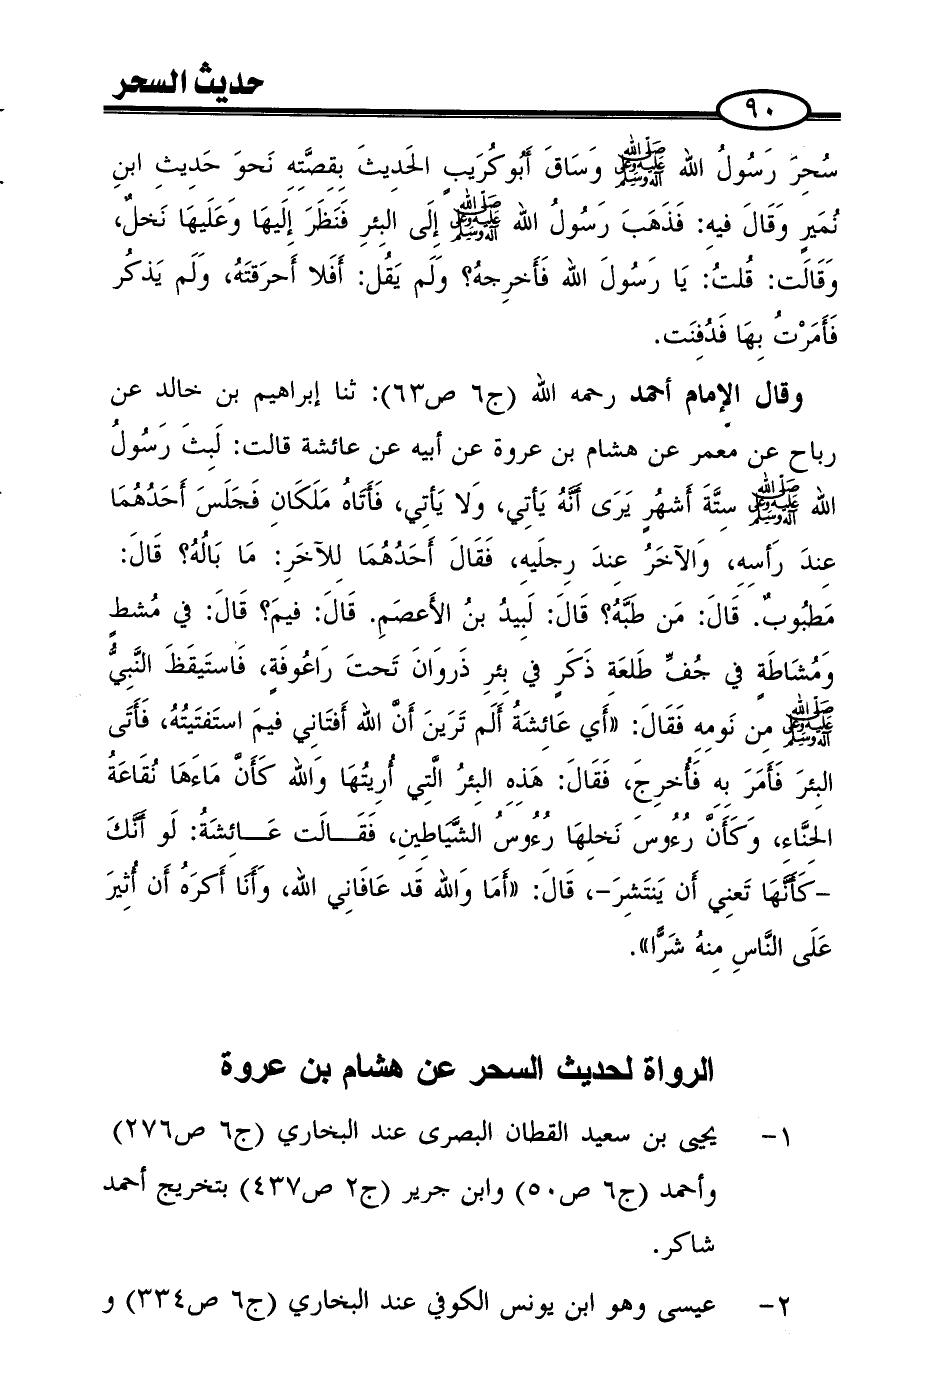 حديث السحر
٩٠
سُحِرَ رَسُولُ الله ﷺ وَسَاقَ أَبُوكُرَيبٍ الحَديثَ بِقِصَّتِهِ نَحوَ حَديثِ ابنِ
نُمَيرٍ وَقَالَ فيه: فَذَهَبَ رَسُولُ الله ﷺ إِلَى البِئرِ فَنَظَرَ إِلَيهَا وَعَلَيهَا نَخلٌ،
وَقَالَت: قُلتُ: يَا رَسُولَ الله فَأَخرِجهُ؟ وَلَم يَقُل: أَفَلا أَحرَقتَهُ، وَلَم يَذكُر
فَأَمَرْتُ بِهَا فَدُفِنَت.
وقال الإمام أحمد رحمه الله (ج٦ ص٦٣): ثنا إبراهيم بن خالد عن
رباح عن معمر عن هشام بن عروة عن أبيه عن عائشة قالت: لَبِثَ رَسُولُ
الله ﷺ ستَّةَ أَشهُرٍ يَرَى أَنَّهُ يَأتي، وَلا يَأتي، فَأَتَاهُ مَلَكَانِ فَجَلَسَ أَحَدُهُمَا
عِندَ رَأسِهِ، وَالآخَرُ عِندَ رِجلَيهِ، فَقَالَ أَحَدُهُمَا لِلآخَرِ: مَا بَالُهُ؟ قَالَ:
مَطبُوبٌ. قَالَ: مَن طَبَّهُ؟ قَالَ: لَبيدُ بنُ الأَعصَمِ. قَالَ: فيمَ؟ قَالَ: في مُشطٍ
وَمُشَاطَةٍ في جُفِّ طَلعَةِ ذَكَرٍ في بِئرِ ذَروَانَ تَحتَ رَاعُوفَةٍ، فَاستَيقَظَ النَّبيُّ
ﷺ مِن نَومِهِ فَقَالَ: «أَي عَائشَةُ أَلَم تَرَينَ أَنَّ الله أَفتَاني فيمَ استَفتَيتُهُ، فَأَتَى
البِئرَ فَأَمَرَ بِهِ فَأُخرِجَ، فَقَالَ: هَذِهِ البِئرُ الَّتي أُرِيتُهَا وَالله كَأَنَّ مَاءَهَا نُقَاعَةُ
الحِنَّاءِ، وَكَأَنَّ رُءُوسَ نَخلِهَا رُءُوسُ الشَّيَاطينِ، فَقَـالَت عَـائِشَةُ: لَو أَنَّكَ
-كَأَنَّهَا تَعني أَن يَنتَشِرَ-، قَالَ: «أَمَا وَالله قَد عَافَاني الله، وَأَنَا أَكرَهُ أَن أُثِيرَ
عَلَى النَّاسِ مِنهُ شَرًّا».
الرواة لحديث السحر عن هشام بن عروة
١- يحيى بن سعيد القطان البصرى عند البخاري (ج٦ ص٢٧٦)
وأحمد (ج٦ ص٥٠) وابن جرير (ج٢ ص٤٣٧) بتخريج أحمد
شاكر.
٢- عيسى وهو ابن يونس الكوفي عند البخاري (ج٦ ص٣٣٤) و